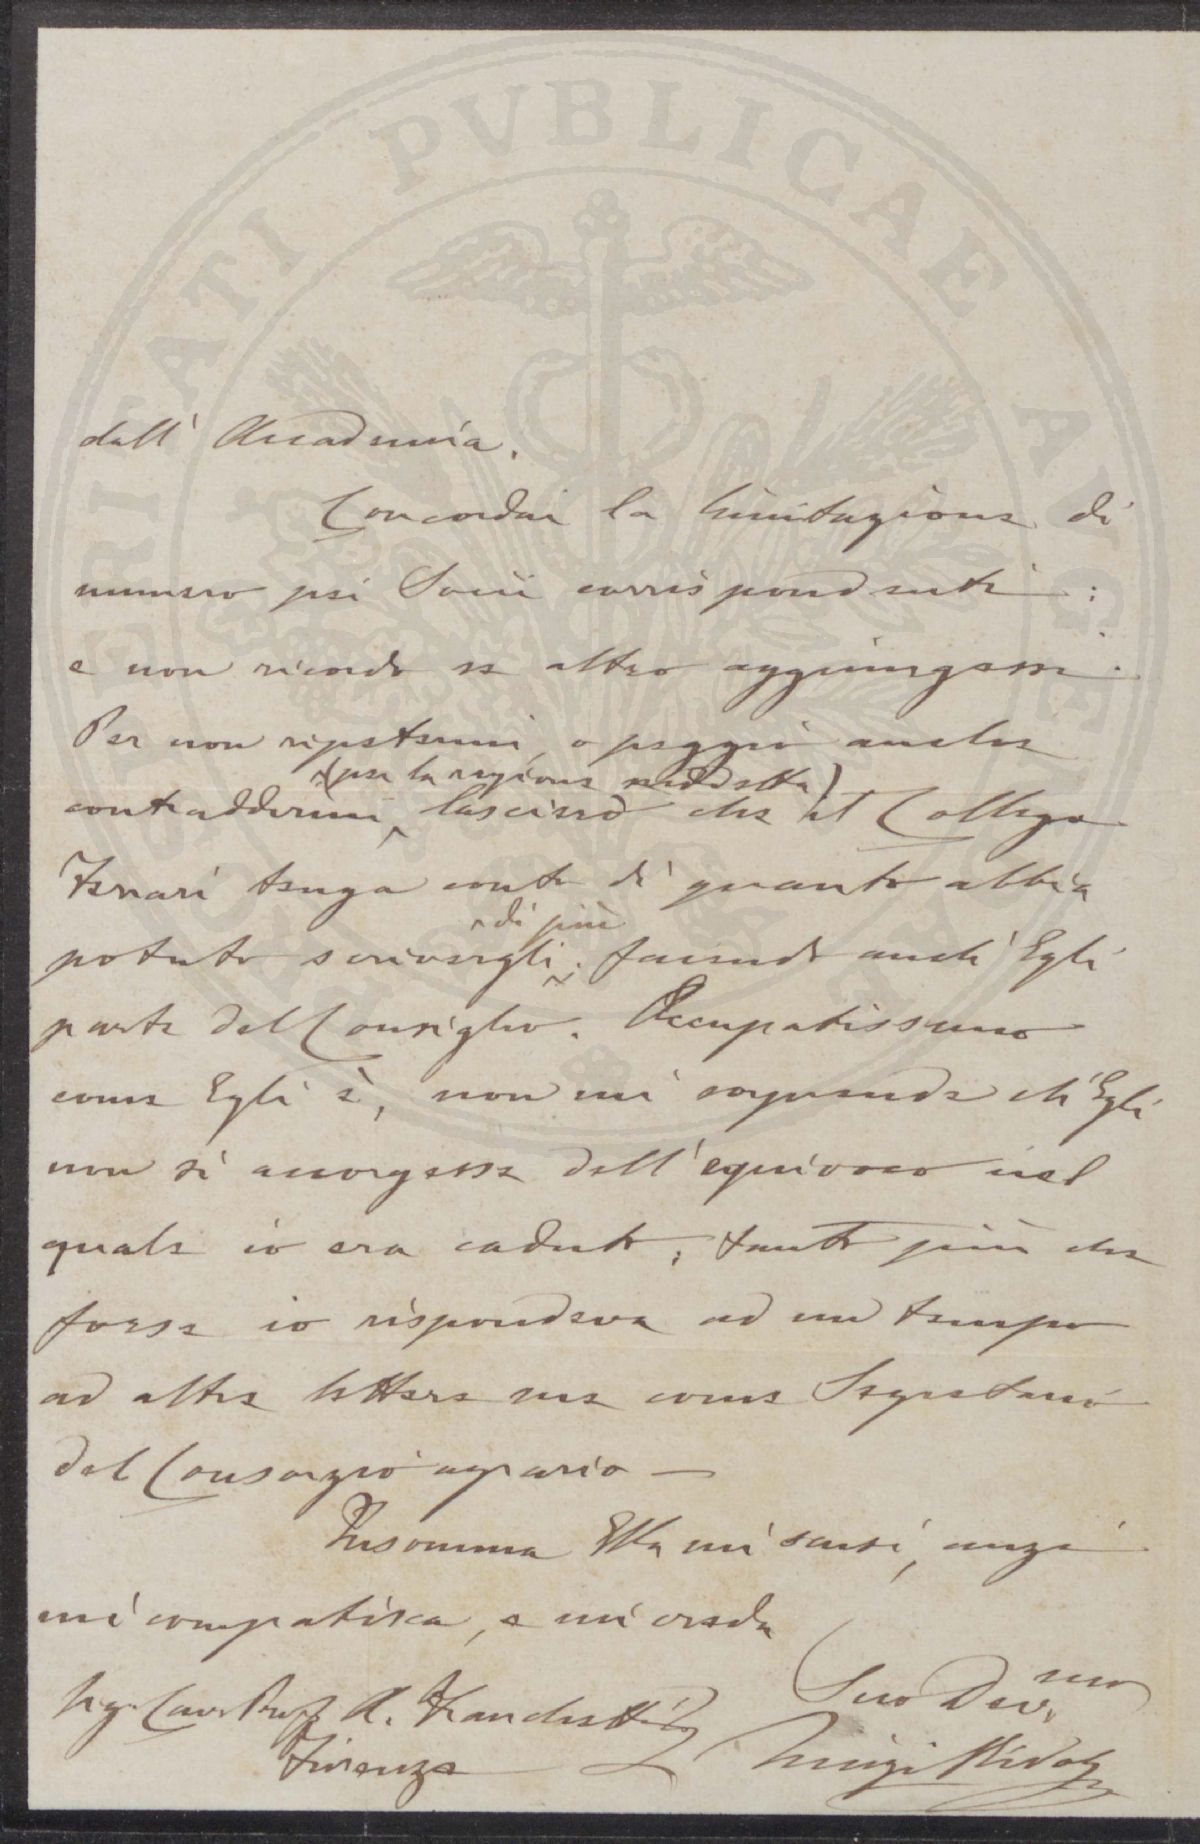 PROSPERITATI PVBLICAE AVGENDAE
dall' Accademia.
Concordai la limitazione di
numero pei Socii corrispondenti:
e non ricordo se altro aggiungessi.
Per non ripetermi, o peggio anche
(per la ragione suddetta)
contraddirmi, lascierò che il Collega
tenga conto di quanto abbia
di più
potuto scrivergli; facendo anch'Egli
parte del Consiglio. Occupatissimo
come Egli è, non mi sorprende ch'Egli
non si accorgesse dell'equivoco nel
quale io era caduto; tanto più che
forse io rispondeva ad un tempo
ad altre lettere me come Segretario
del Consorzio agrario —
Insomma Ella mi scusi, anzi
mi compatisca, e mi creda
Suo Dev.mo
Sig. Cav. Prof. A.
Firenze Luigi Ridolfi